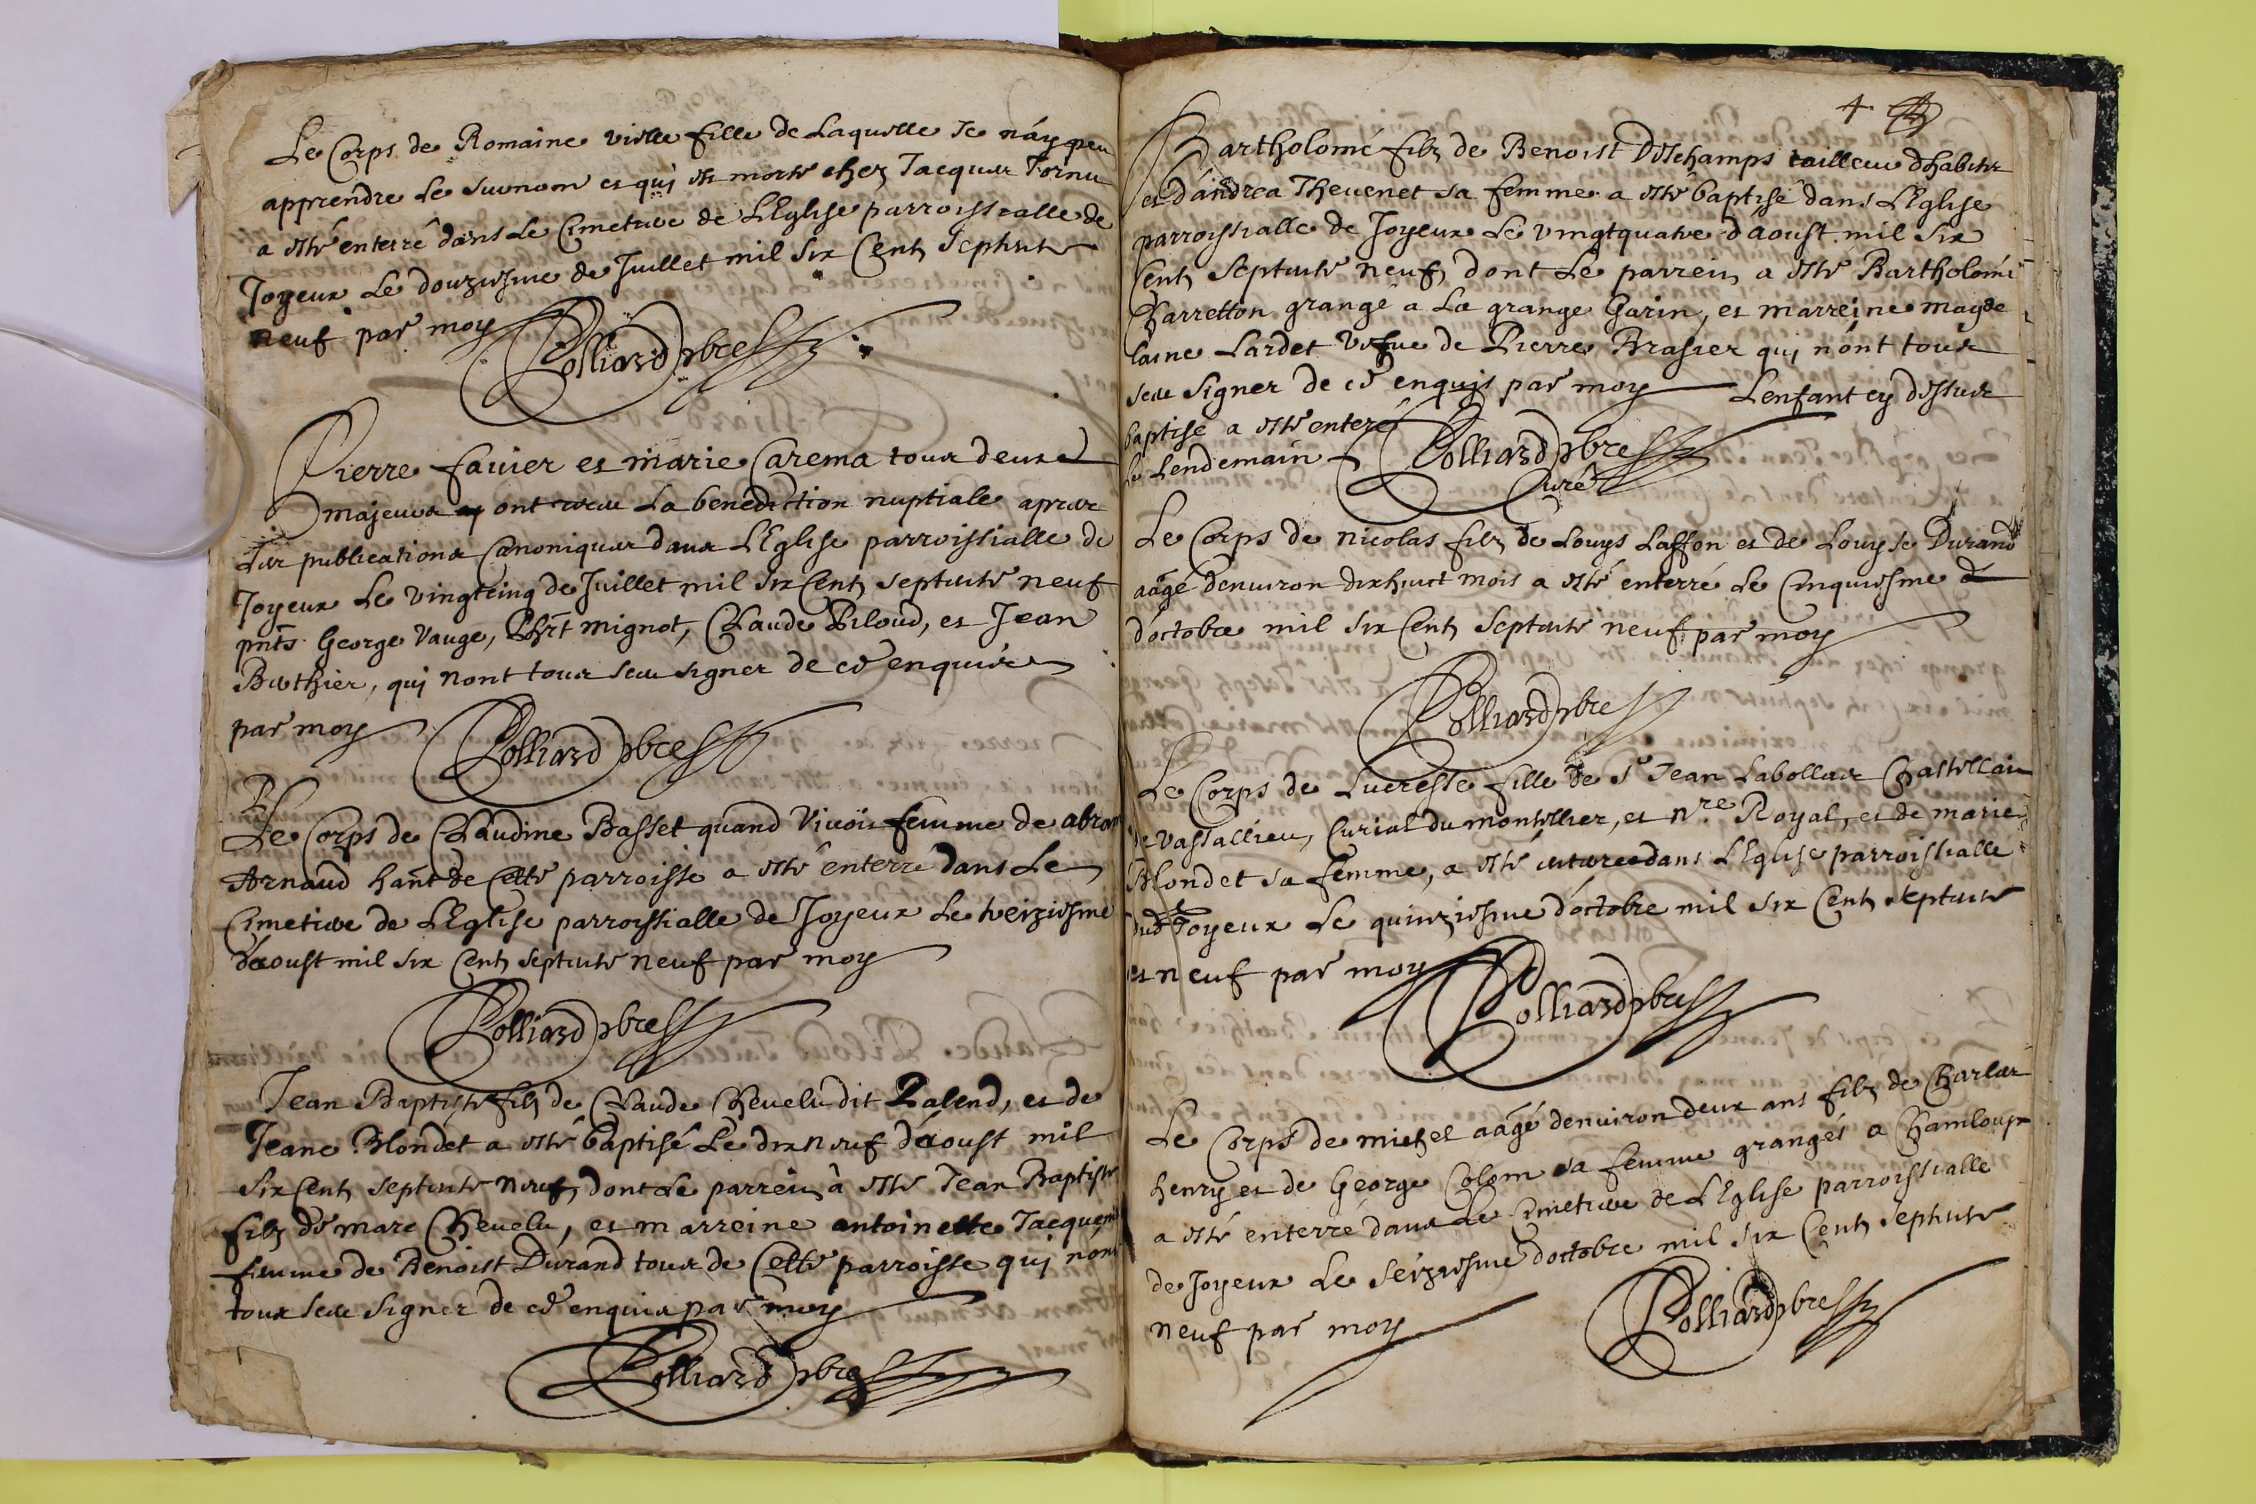 Le Corps de Romaine vielle fille de Laquelle Je náy peu
apprendre Le surnom et qui est morte chez Jacques Fornu
a esté enterré dans Le Cimetiere de LEglise parroissialle de
Joyeux Le douziesme de Juillet mil six Cent Septente
neuf par moy
Polliard pbre
Pierre favier et marie Carema tous deux
majeurs ont receu La benediction nuptiale apres
Les publications Canoniques dans LEglise parroissialle de
Joyeux Le vingtcinq de Juillet mil six Cent septente neuf
pnts George Vauge, Mignot, Claude Piloud, et Jean
Berthier, qui nont tous sceu signer de ce enquis
par moy
Polliard pbre
Le Corps de Claudine Basset quand Vivoit femme de abram
Arnaud hant de Cette parroisse a esté enterré dans Le
Cimetiere de LEglise parroissialle de Joyeux Le treiziesme
dáoust mil six Cent septente neuf par moy
Polliard pbre
Jean Baptiste filz de Claude Chevelu dit Lalend, et de
Jeane Blondet a esté baptisé Le dixneuf dáoust mil
six Cent septente neuf, dont Le parrein à esté Jean Baptiste
filz de marc Chevelu, et marreine antoinette Jacquem
femme de Benoist Durand tous de Cette parroisse qui nont
tous sceu signer de ce enquis par moy
Polliard pbre
4
Bartholomé filz de Benoist Deschamps tailleur dhabitz
et dándrea Thevenet sa femme a esté baptisé dans LEglise
parroissialle de Joyeux Le vingtquatre dáoust mil six
Cent Septente neuf, dont Le parrein a esté Bartholomé
Charretton grangé a La grange Garin, et marreine magde
laine Lardet vefve de Pierre Brasier qui nónt tous
sceu signer de ce enquis par moy Lenfant cy dessus
baptisé a esté enterré
le Lendemain
Polliard pbre
Curé
Le Corps de nicolas filz de Louys Laffon et de Louyse Durand
aágé denviron dixhuict mois a esté enterré Le Cinquiesme d
dóctobre mil six Cent Septente neuf par moy
Polliard pbre
Le Corps de Lucresse fille de Sr Jean Labollas Chastellain
de vassallieu, Curial du montellier, et Nre Royal, et de marie
Blondet sa femme, a esté enterree dans LEglise parroissialle
dud Joyeux Le quinziesme dóctobre mil six Cent septente
et neuf par moy
Polliard pbre
Le Corps de michel aágé denviron deux ans filz de Charles
henry et de George Colom sa femme grangés a Chamloup
a esté enterré dans Le Cimetiere de LEglise parroissialle
de Joyeux Le Seiziesme doctobre mil six Cent Septente
neuf par moy
Polliard pbre